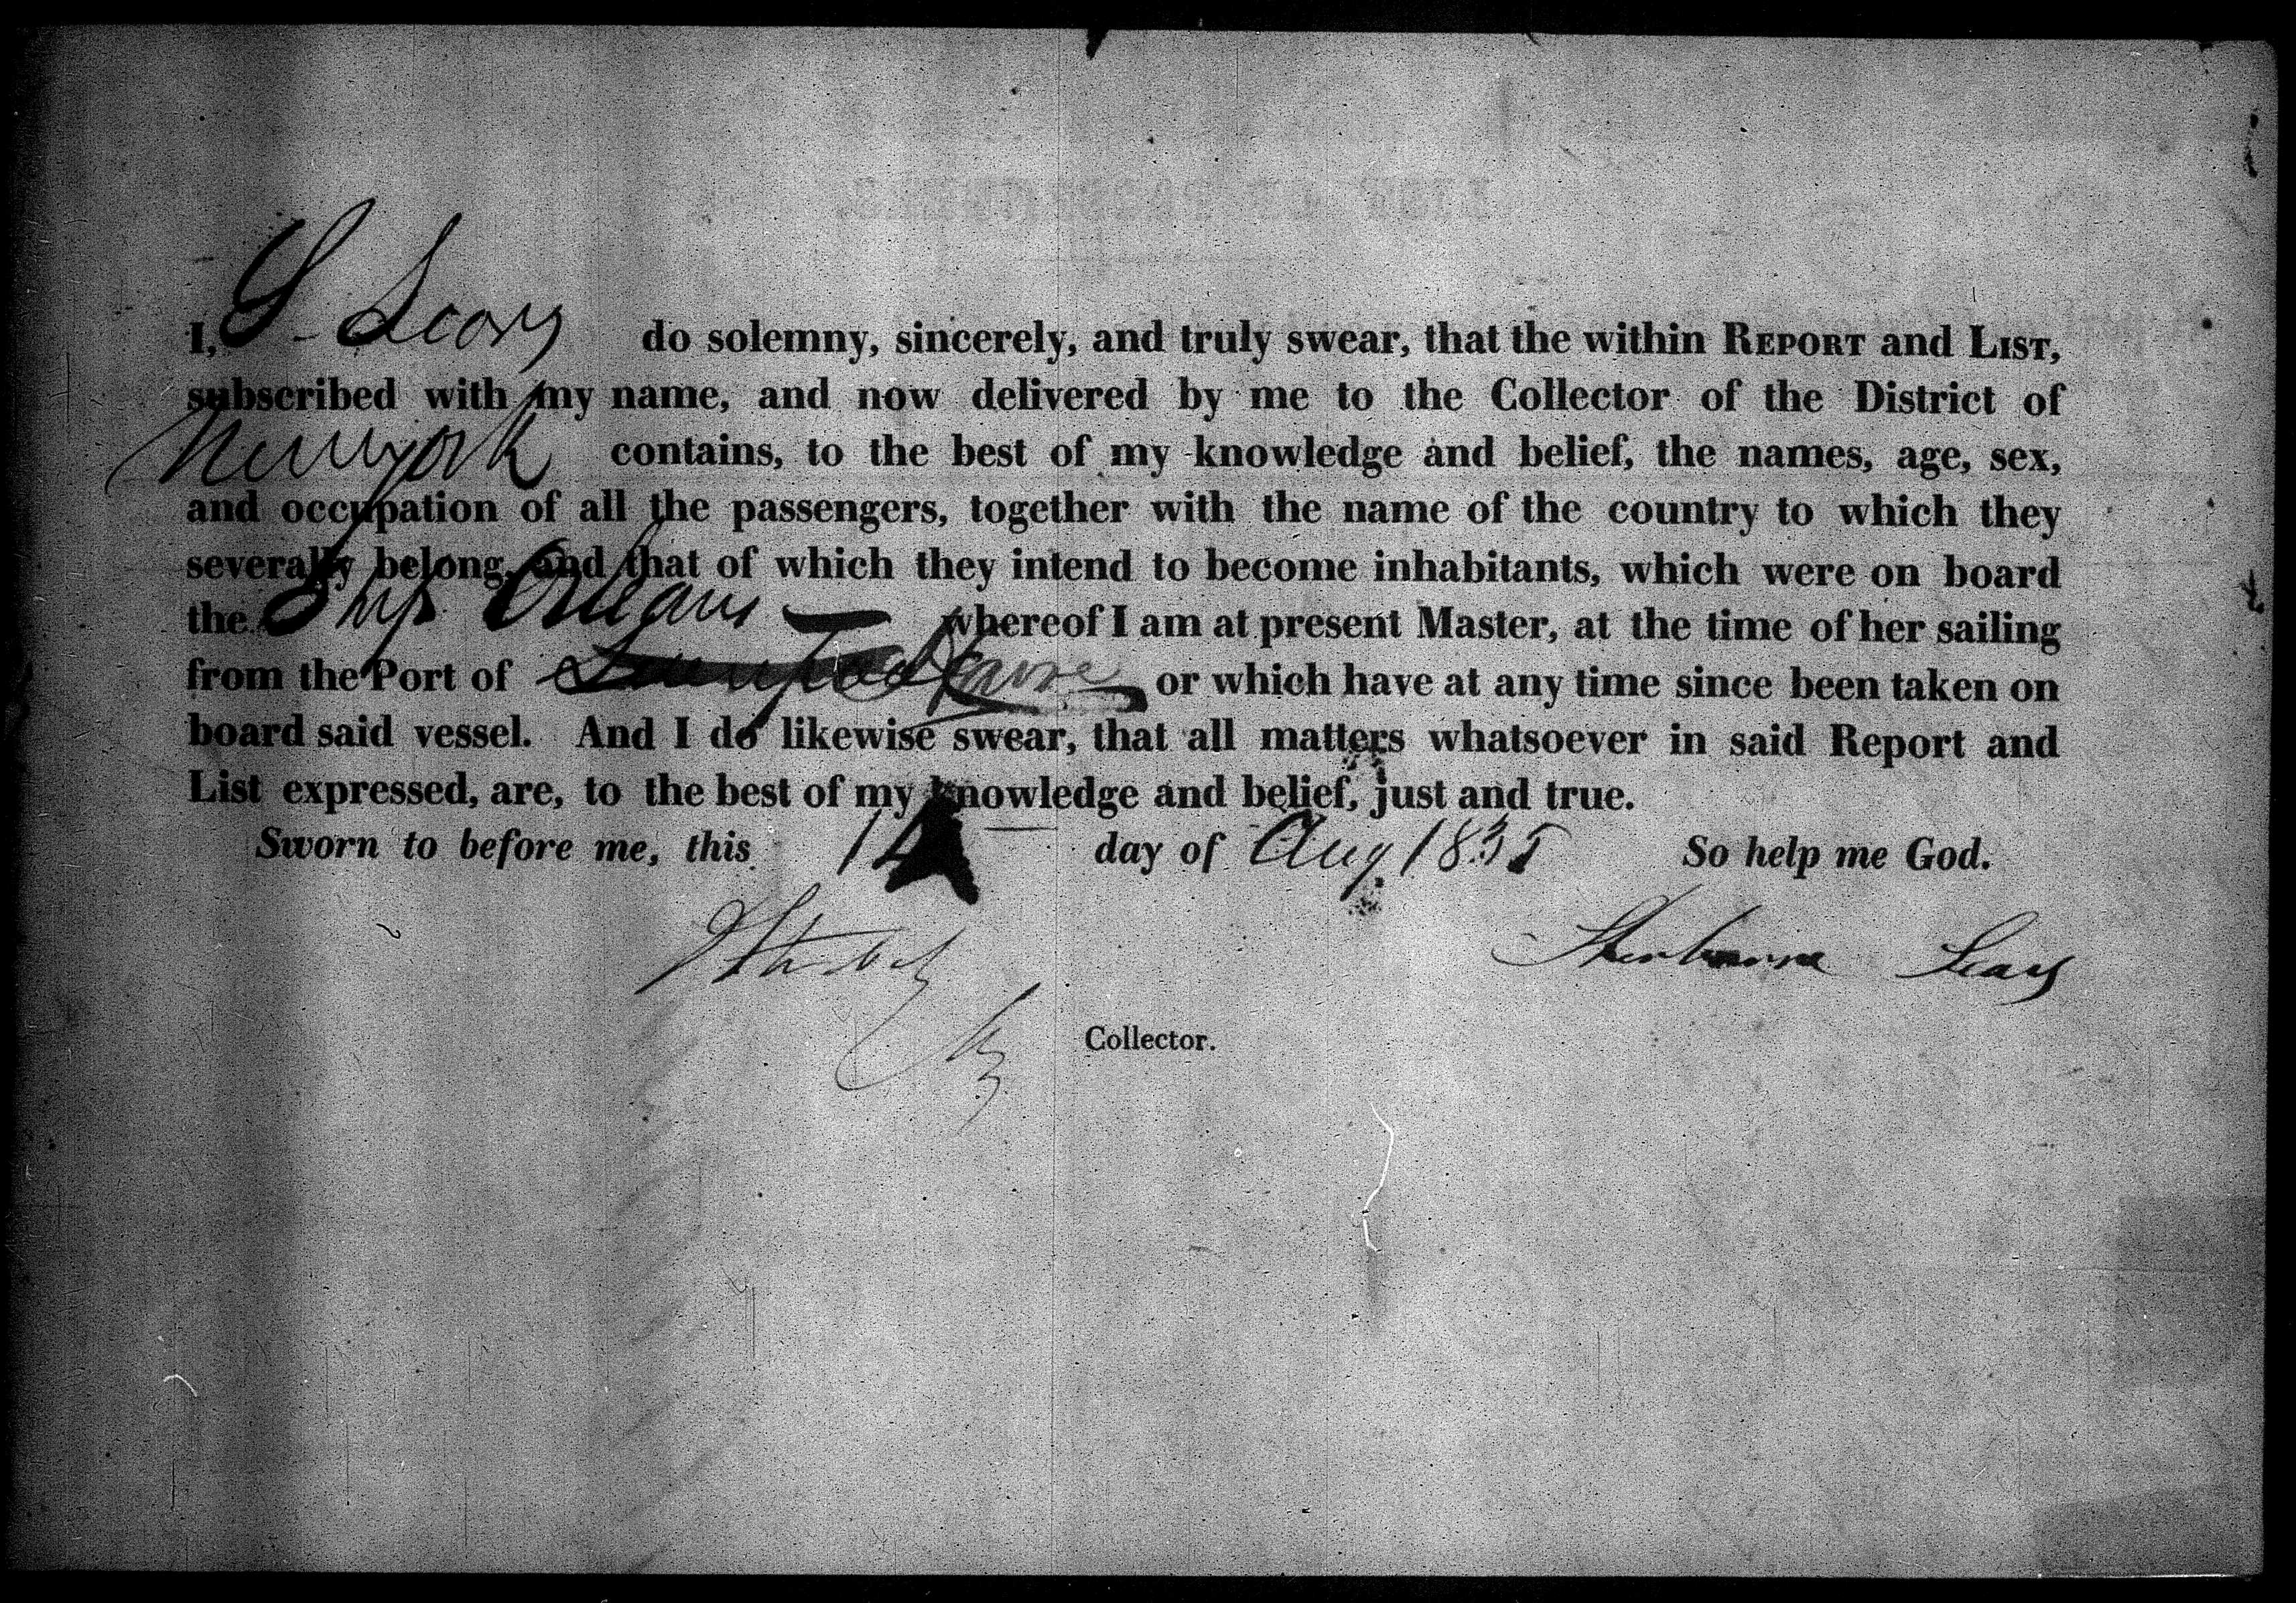 I, S. Sears do solemny, sincerely, and truly swear, that the within REPORT and LIST,
subscribed with my name, and now delivered by me to the Collector of the District of
New york contains, to the best of my knowledge and belief, the names, age, sex,
and occupation of all the passengers, together with the name of the country to which they
severally belong, and that of which they intend to become inhabitants, which were on board
the Ship Orleans whereof I am at present Master, at the time of her sailing
from the Port of Havre or which have at any time since been taken on
board said vessel. And I do likewise swear, that all matters whatsoever in said Report and
List expressed, are, to the best of my knowledge and belief, just and true.
Sworn to before me, this 14 day of Aug 1835 So help me God.
Sears
Collector.